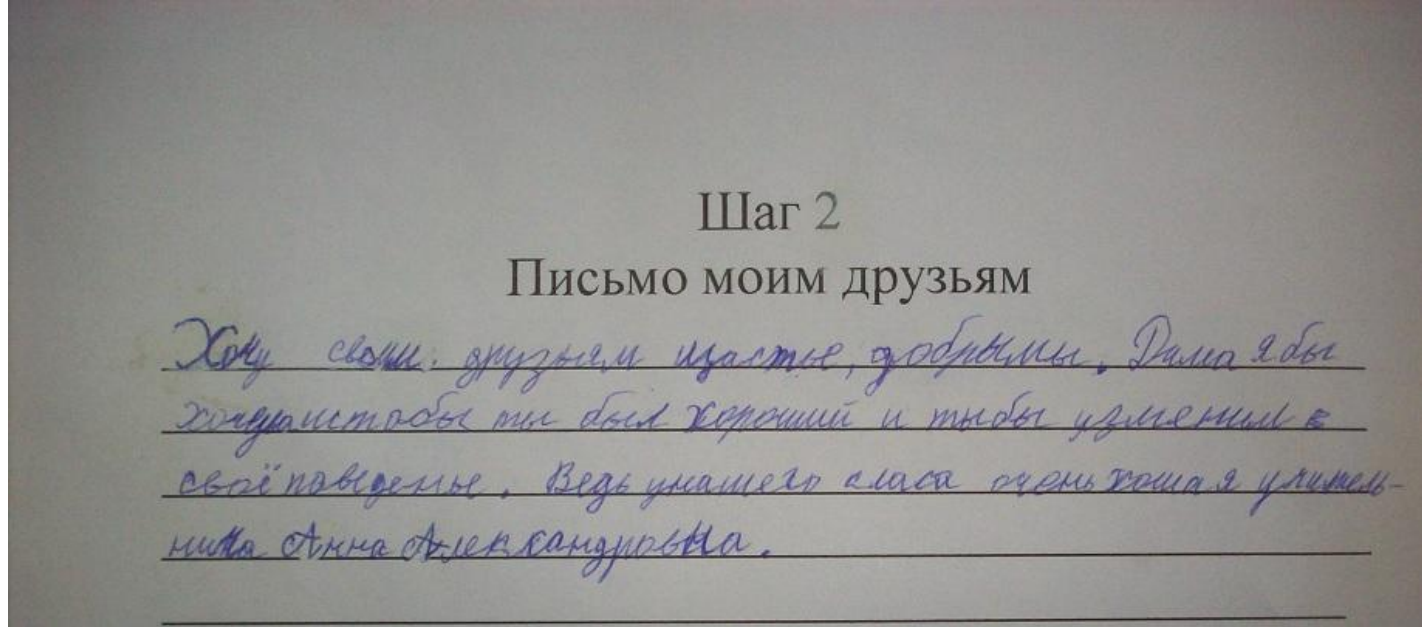 Шаг 2
Письмо моим друзьям
Хочу свои друзьям щастье, добрымы. Дима я бы
чтобы ты был хороший и тыбы узменил
своё паведенье. Ведь унашего класа очень хошая учитель-
ника Анна Александровна.